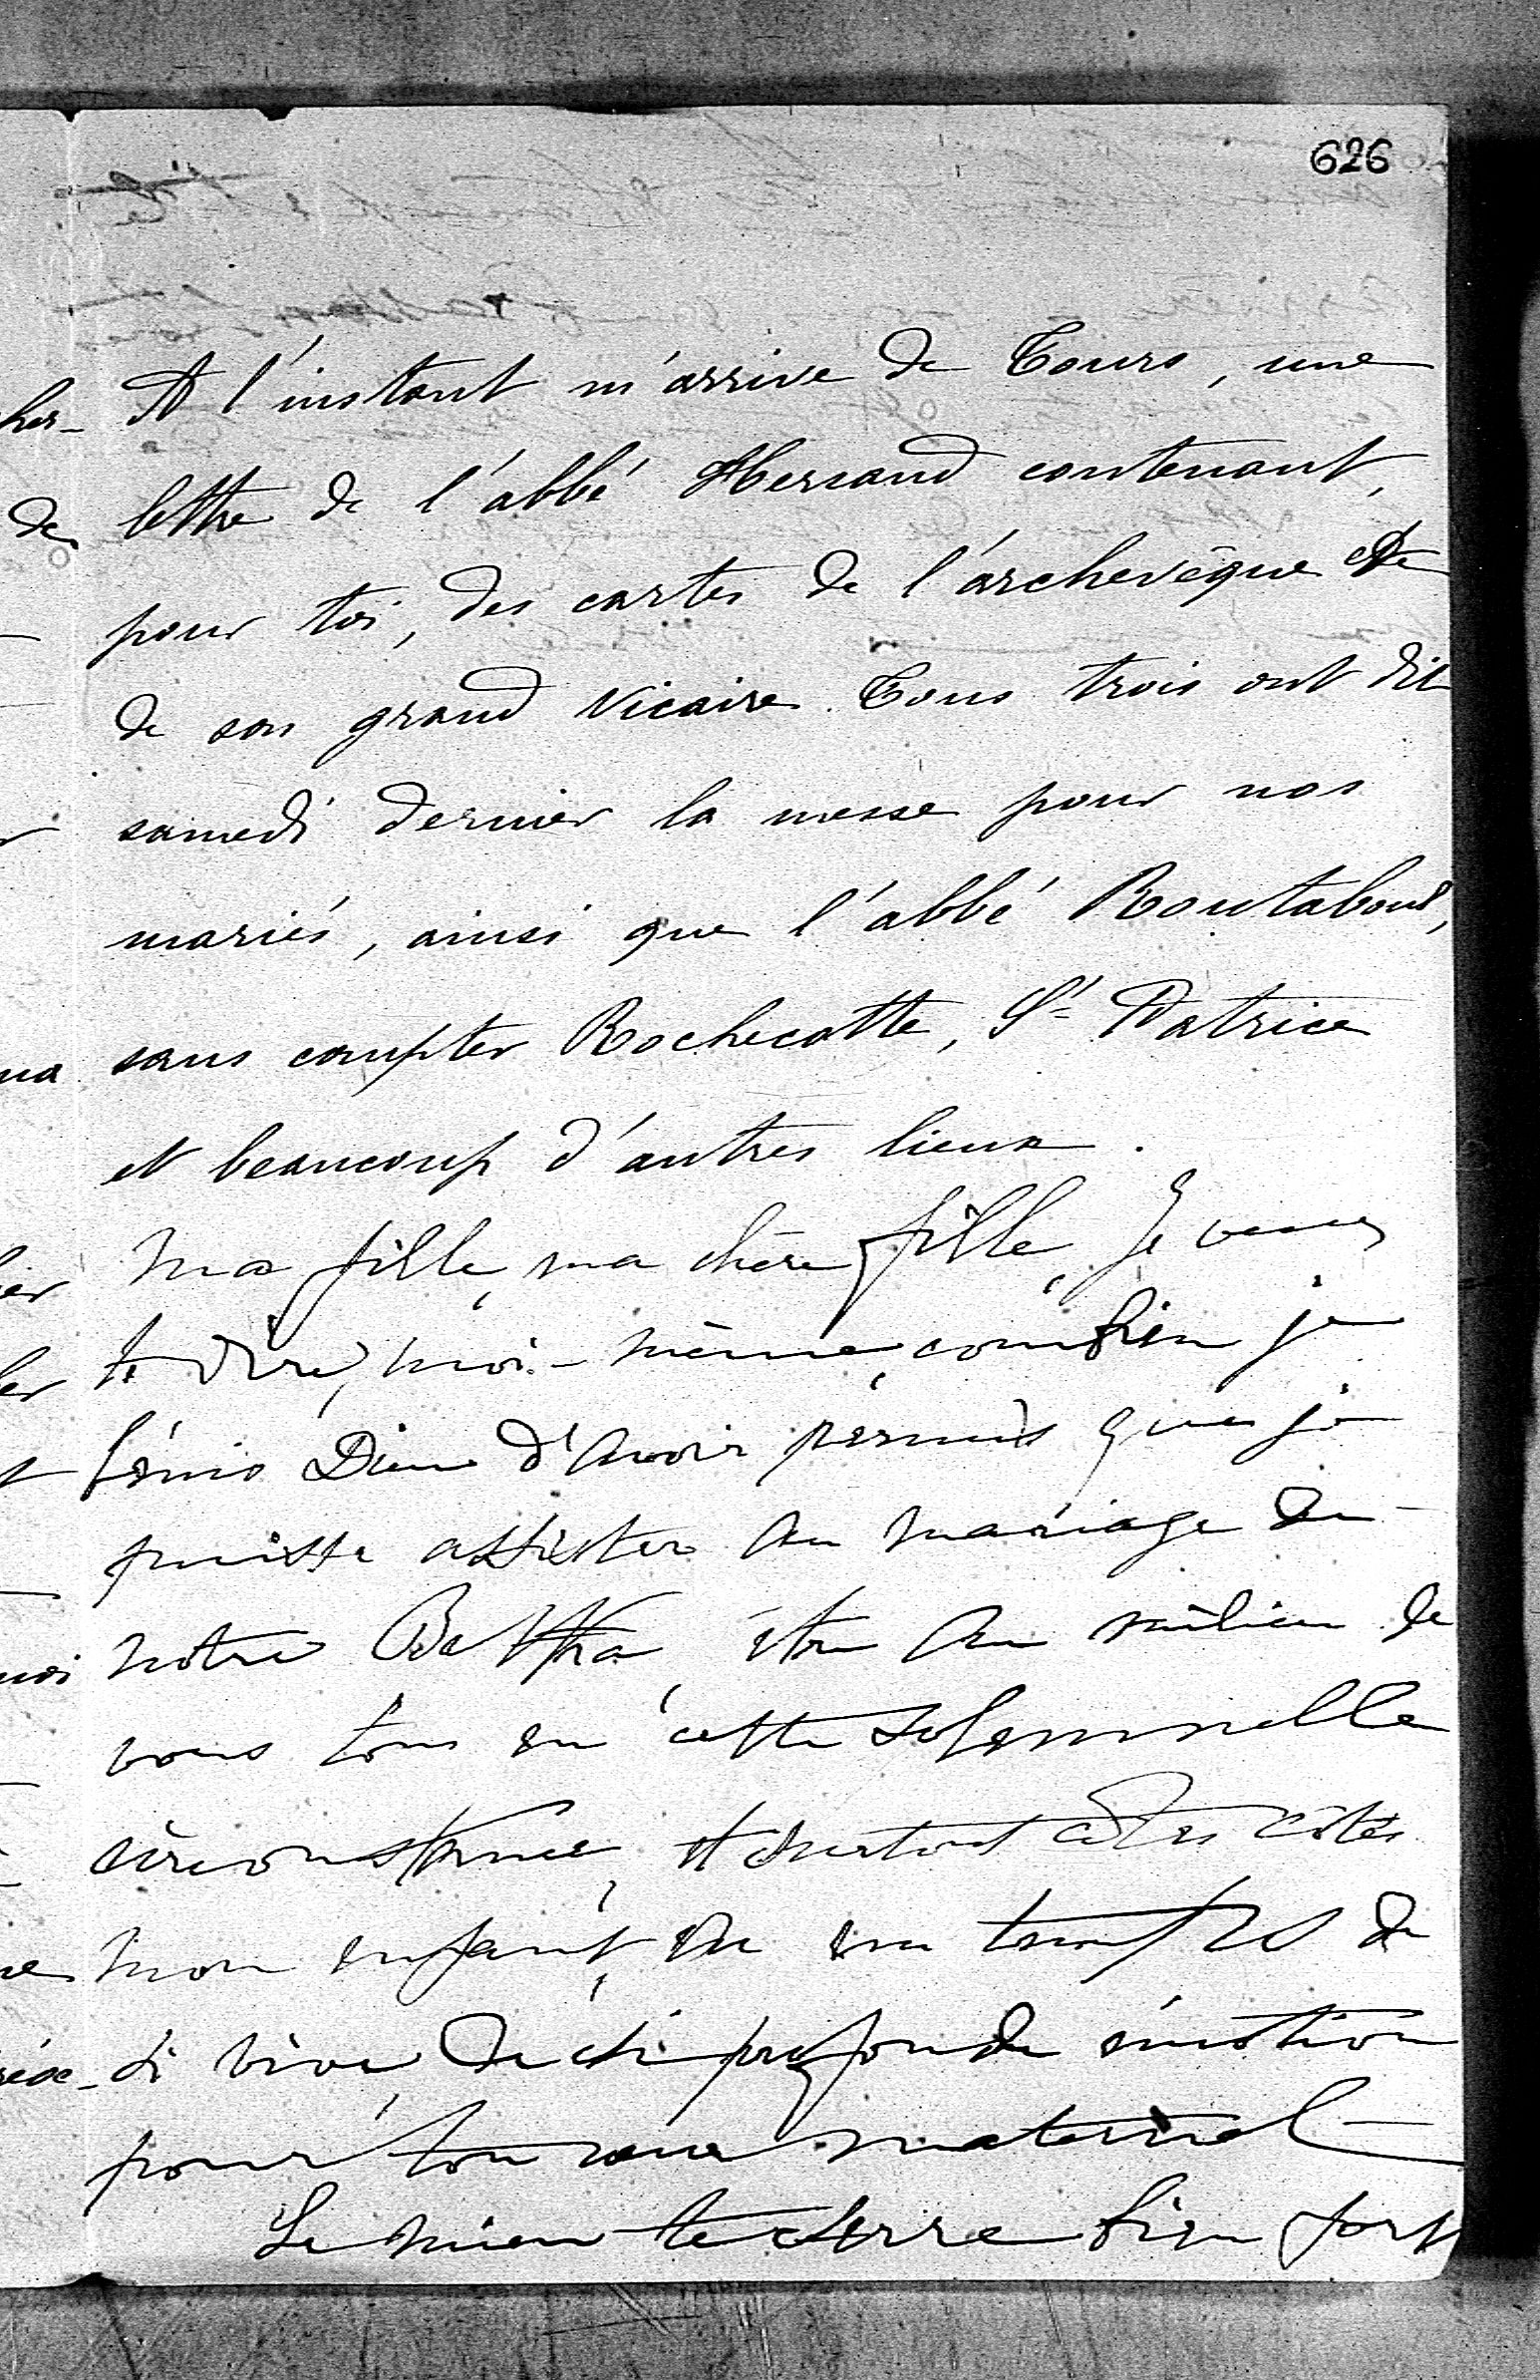 626
A l'instant m'arrive de Tours, une
lettre de l'abbé contenant,
pour toi, des cartes de l'archevêque et
de son grand Vicaire. Tous trois ont dit
samedi dernier la messe pour nos
mariés, ainsi que l'abbé
sans compter Rochecotte, St Patrice
et beaucoup d'autres lieux.
Ma fille, ma chère fille, je veux
te dire, moi-même, combien je
bénis Dieu d'avoir permis que je
puisse assister au mariage de
notre être au milieu de
vous tous en cette solemnelle
circonstance, et surtout à tes côtés
mon enfant, en un temps de
si vive, de si profonde émotion
pour ton cœur maternel
Le mien te serre bien fort